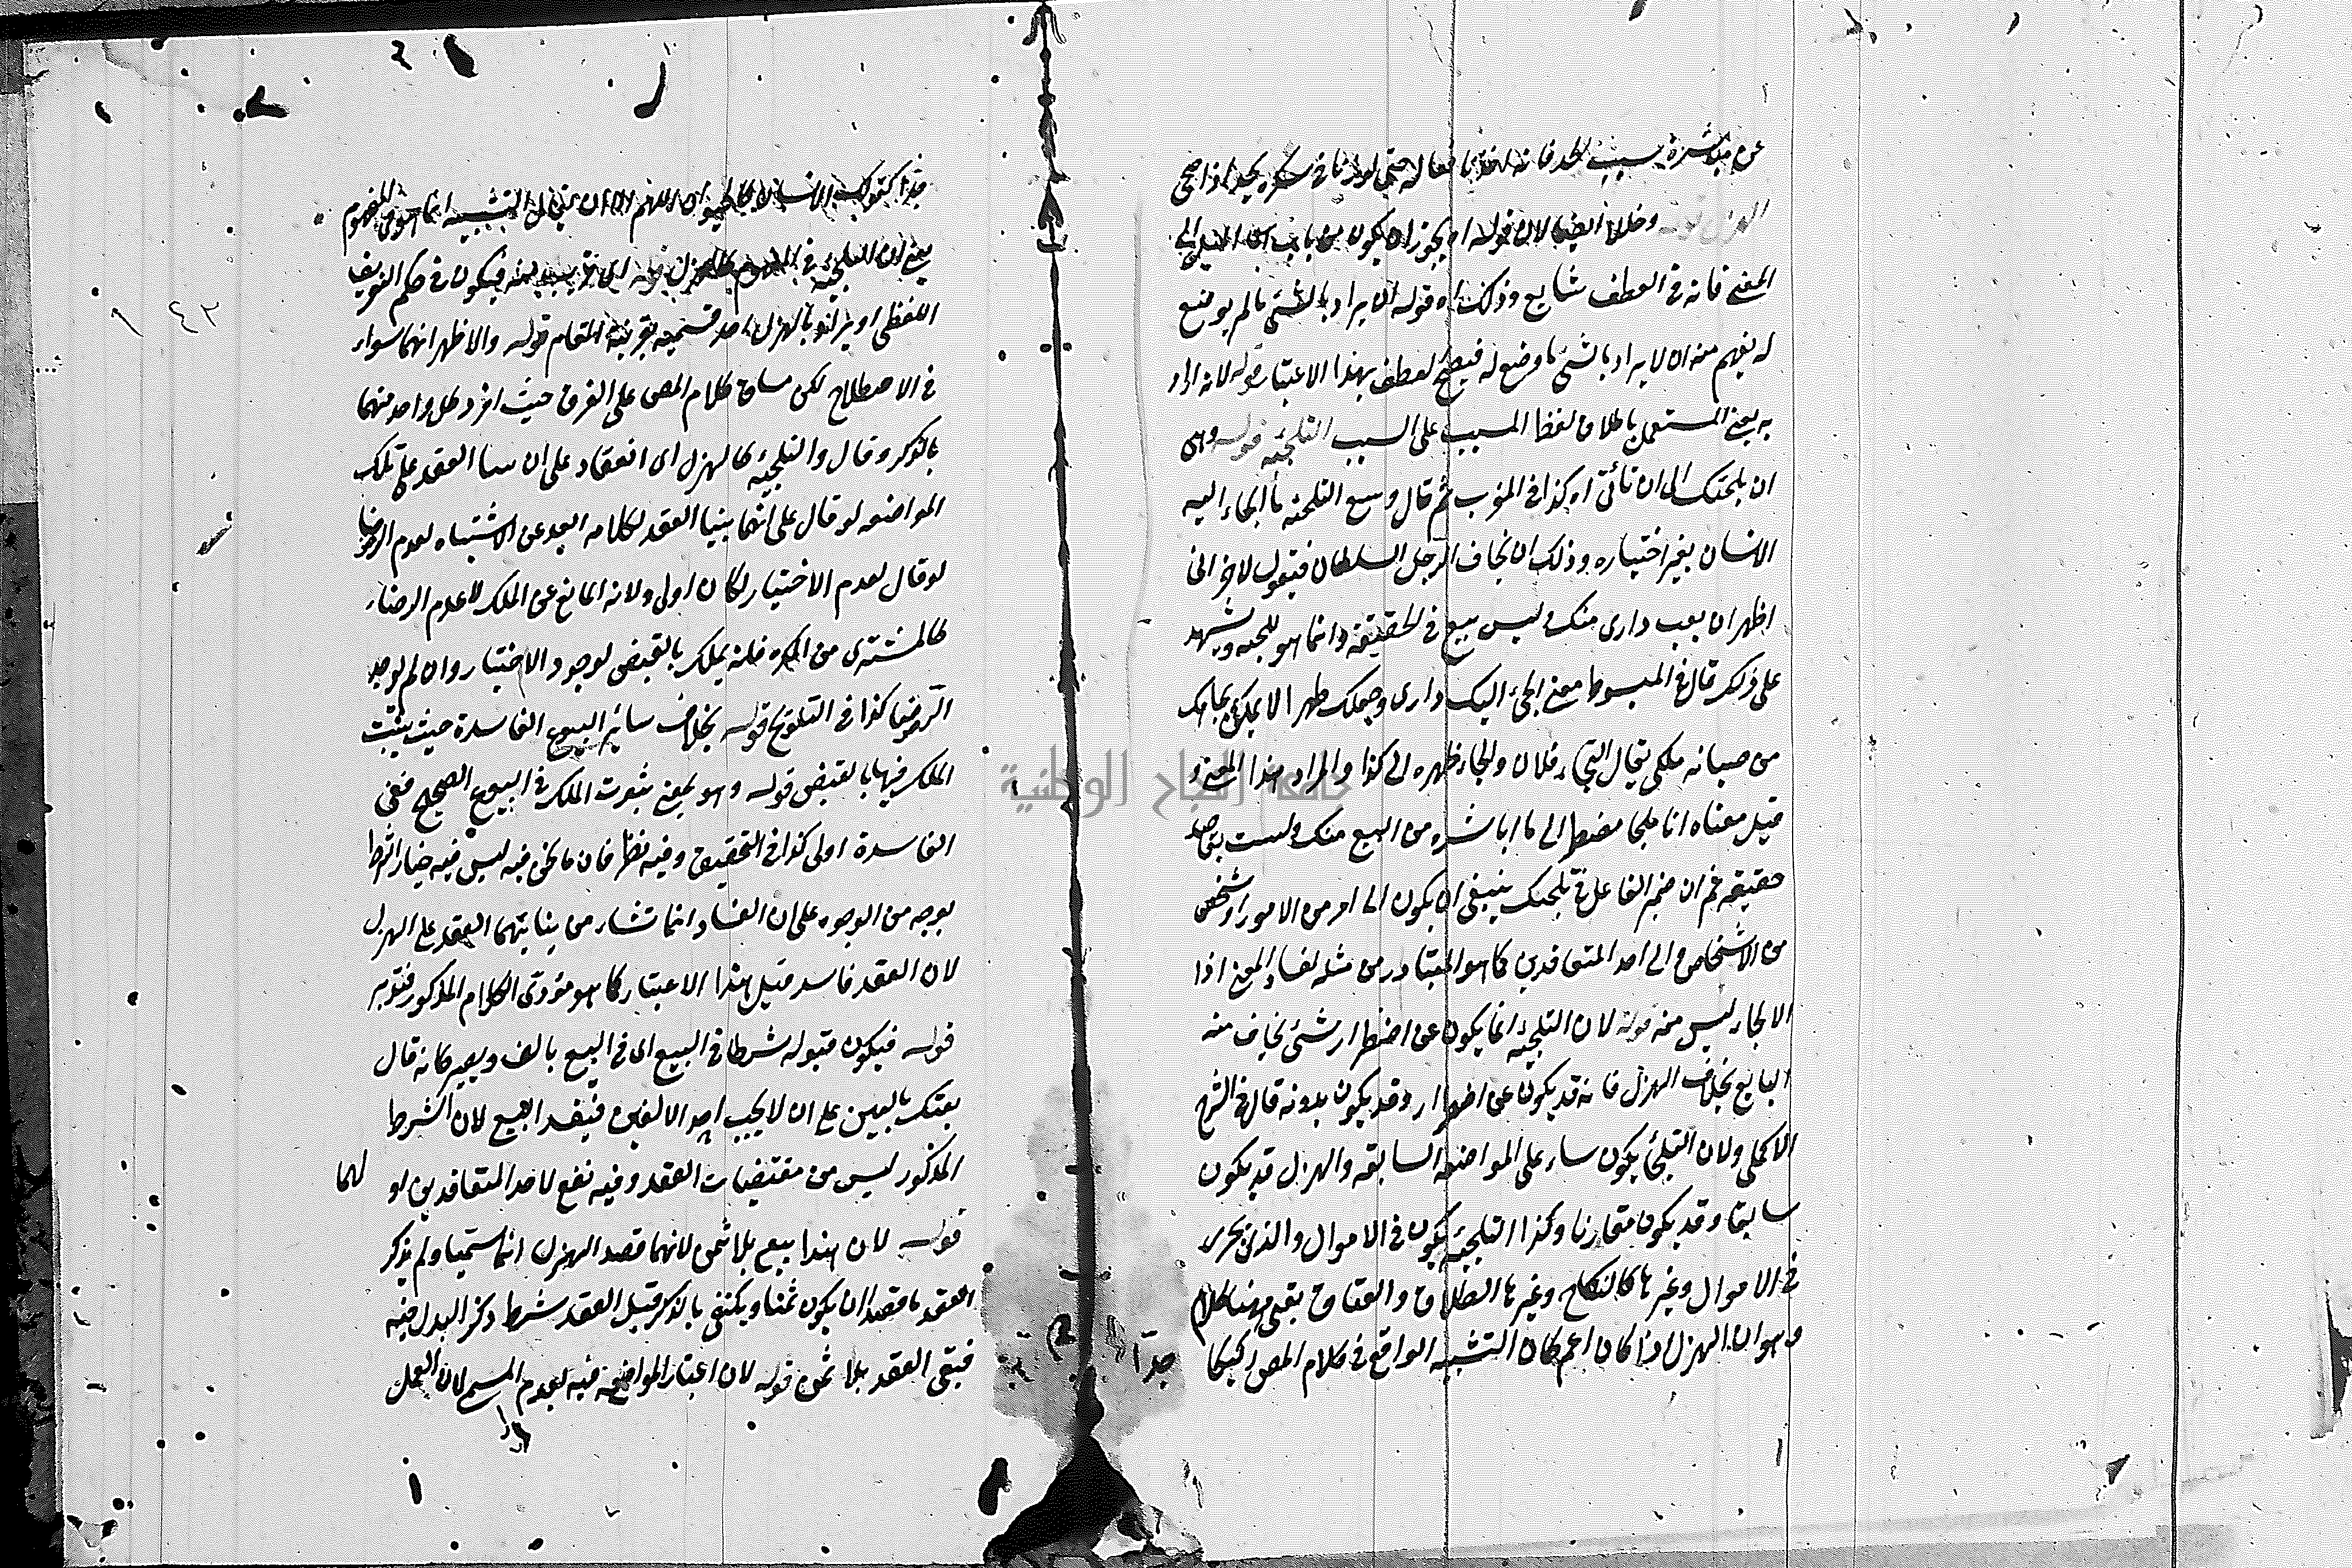 عن مباشرة سبب الحد فانه لهذا افعاله حتى لو زنا في سكره يحد اذا صحى
الهزل قوله وخلا ايضا لان قوله اه يجوز ان يكون من باب الميل الى
المعنى فانه في العطف شايع وذلك اه قوله ان يراد بالشئ ما لم يوضع
له يفهم منه ان لا يراد بالشئ ما وضع له فيصح العطف بهذا الاعتبار قوله لانه اراد
به يعني المستعمل باطلاق لفظ المسبب على السبب التلجئه قوله وهى
ان يلجئك الى ان تأتى اه كذا في المغرب ثم قال وبيع التلجئة ما الجاء اليه
الانسان بغير اختياره وذلك ان يخاف الرجل السلطان فيقول لاخر انى
اظهر ان بعت دارى منك وليس ببيع في الحقيقة وانما هو تلجئه ويشهد
على ذلك قال في المبسوط معنى الجئ اليك دارى وجعلك ظهرا لا تمكن بجاهك
من صيانه ملكى يقال التجاء فلان والجاء ظهره الى كذا والمراد هذا المعنى و
قيل معناه انا ملجا مضطر الى ما اباشره من البيع منك ولست بقاصد
حقيقه ثم ان ضمير الفاعل في يلجئك ينبغى ان يكون الى امر من الامور او شخص
من الاشخاص والى احد المتعاقدين كما هو المتبادر من مثله لفساد المعنى اذا
الالجاء ليس منه قوله لان التلجئه انما يكون عن اضطرار شئ يخاف منه
البايع بخلاف الهزل فانه قد يكون عن اضطرار وقد يكون بدونه قال في الشرح
الاكملى ولان التلجئ يكون بناء على المواضعه السابقه والهزل قد يكون
سابقا وقد يكون مقارنا وكذا التلجئه يكون في الاموال والذى يجرى
في الاموال وغيرها كالنكاح وغيرها الطلاق والعتاق بقى ههنا كلام
وهو ان الهزل اذا كان اعم كان التشبيه الواقع في كلام المص ركيكا
جدا
جدا كقولك الانسان كالحيوان اللهم الا ان يقال التشبيه انما هو في المفهوم
يعنى ان التلجئه في المفهوم كالهزل قوله اى قريب منه فيكون في حكم التعريف
اللفظى او يراد بالهزل احد قسميه بقرينة المقام قوله والاظهر انهما سواء
في الاصطلاح لكن مساق كلام المص على الفرق حيث افرد كل واحد منهما
بالذكر وقال والتلجئه كالهزل اى انعقاد على ان بينا العقد على تلك
المواضعه لو قال على انهما بنيا العقد لكلامه البعد عن الاشتباه لعدم الرضا
لو قال لعدم الاختيار لكان اولى ولانه المانع عن الملك لا عدم الرضاء
كالمشترى من المكره فانه يملك بالقبض لوجود الاختيار وان لم يوجد
الرضا كذا في التلويح قوله بخلاف سائر البيوع الفاسدة حيث يثبت
الملك فيها بالقبض قوله وهو يمنع ثبوت الملك في البيوع الصحيح ففى
الفاسدة اولى كذا في التحقيق وفيه نظر فان ما نحن فيه ليس فيه خيار الشرط
بوجه من الوجوه على ان الفساد انما نشاء من بنائهما العقد على الهزل
لان العقد فاسد قبل هذا الاعتبار كما هو مؤدى الكلام المذكور فتدبر
قوله فيكون قبوله شرطا في البيع اى في البيع بالف ويصير كانه قال
بعتك بالفين على ان لا يجب احد الالفين فيفسد البيع لان الشرط
المذكور ليس من مقتضيات العقد وفيه نفع لاحد المتعاقدين او لهما
قوله لان هذا بيع بلا ثمن لانهما قصد الهزل انما سميا ولم يذكر
العقد ما قصدا ان يكون ثمنا ويكتفى بالذكر قبل العقد شرط ذكر البدل فيه
فبقى العقد بلا ثمن قوله لان اعتبار المواضعه فيه يعدم المسمى لان العمل
٤٢